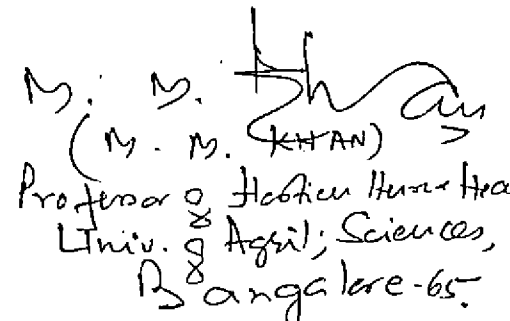 M. M. Khan
(M. M. KHAN)
Professor of Horticulture & Head
Univ. of Agril; Sciences,
Bangalore-65.